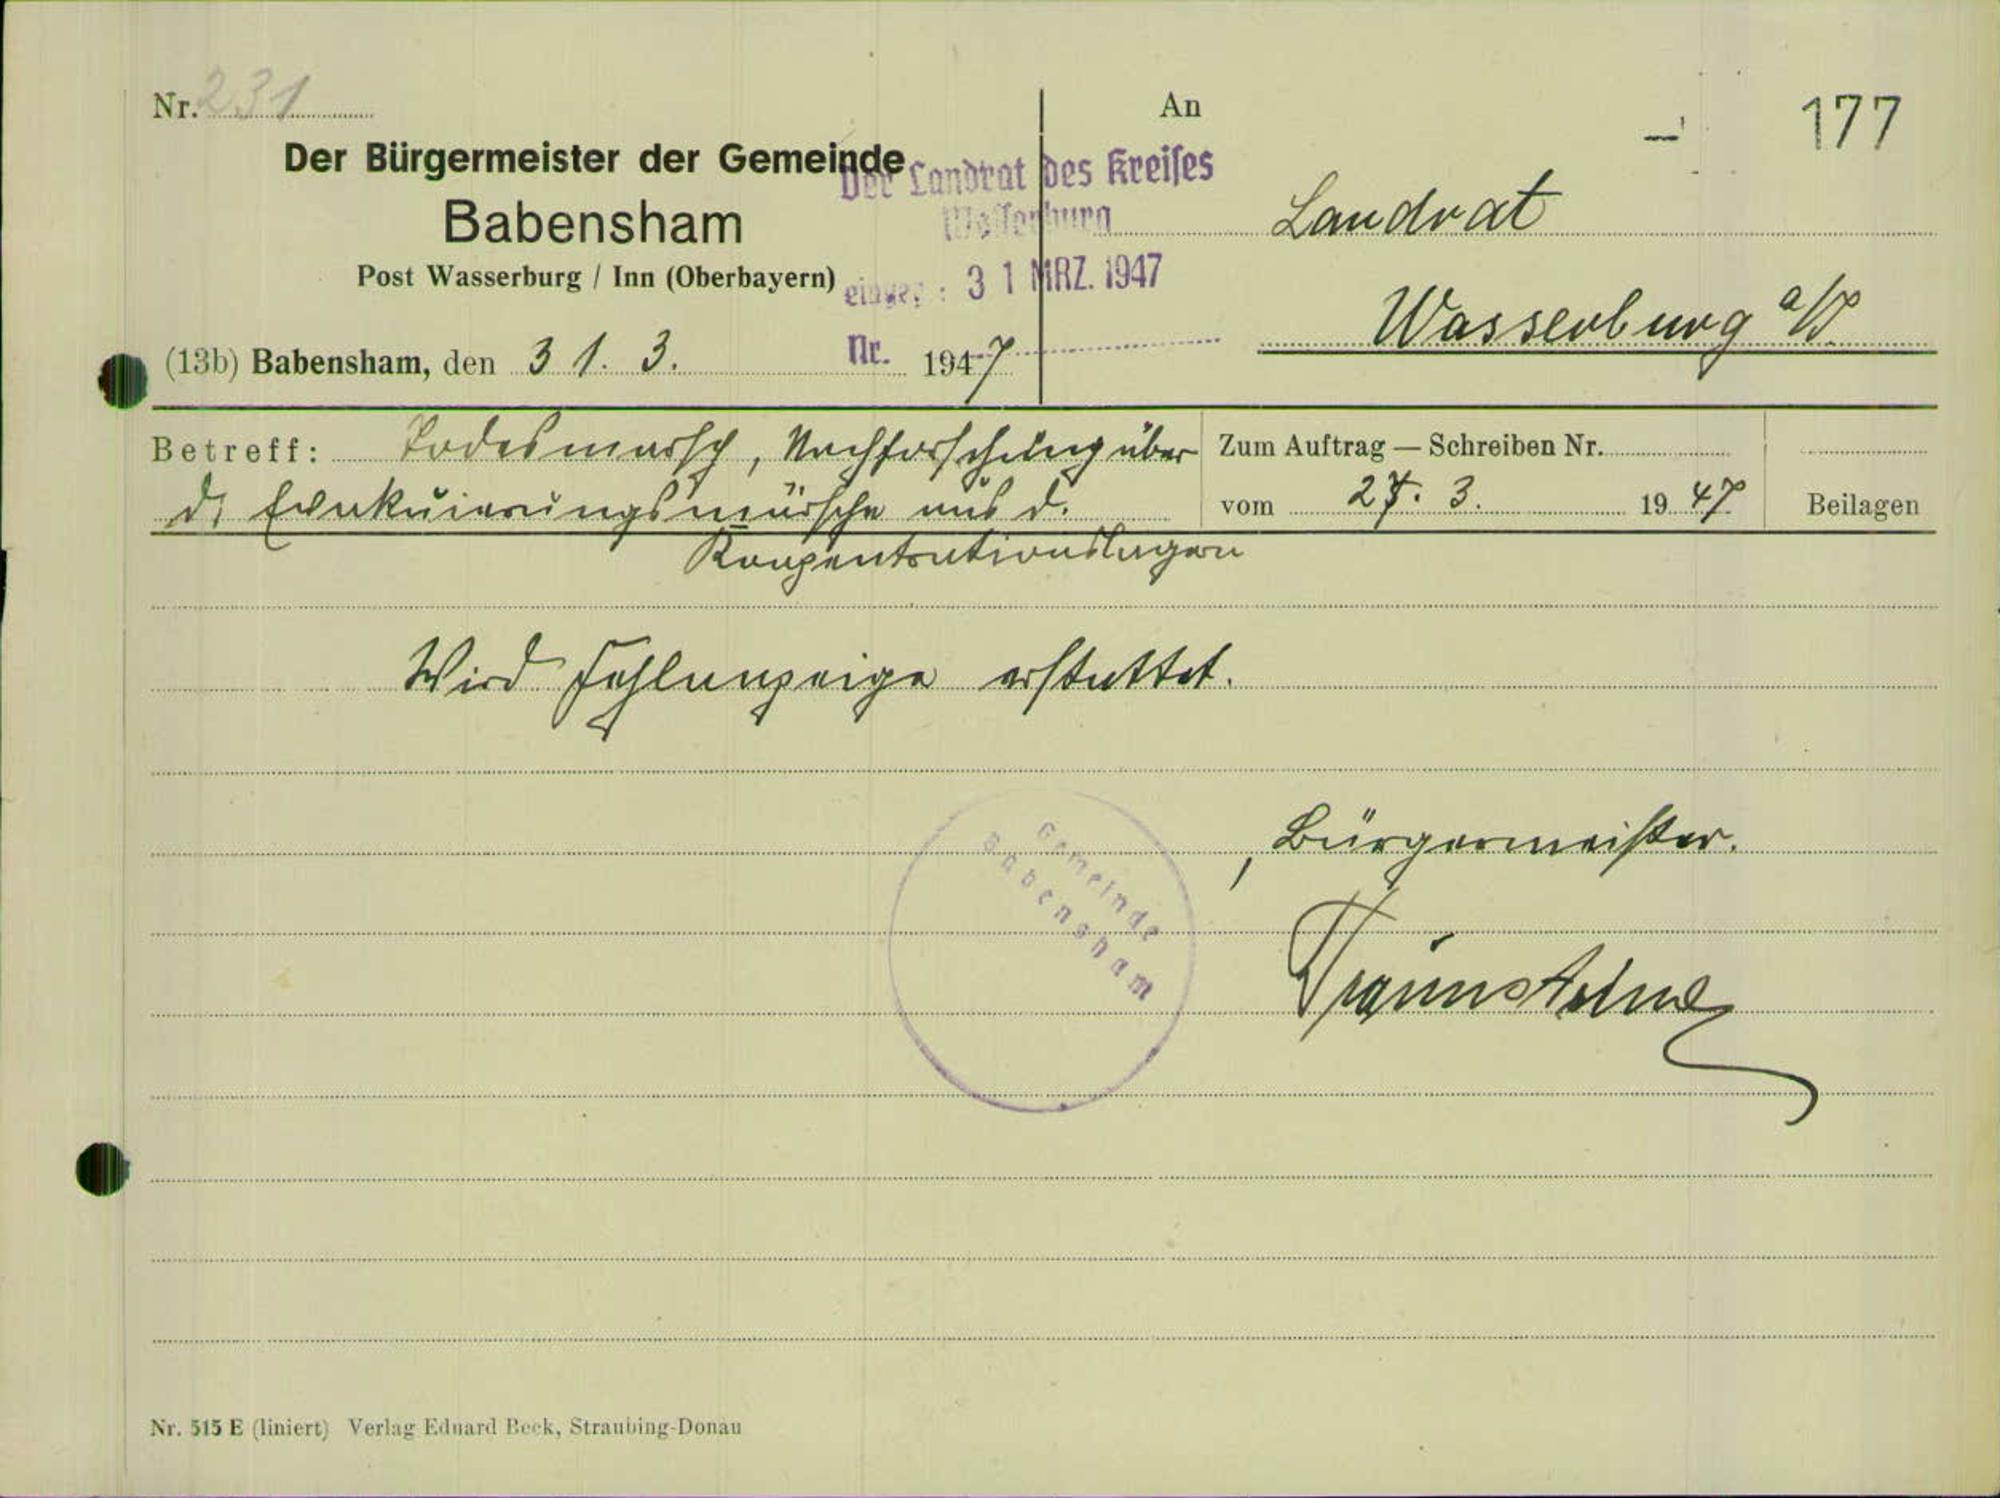 Nr. 231
An
177
Der Bürgermeister der Gemeinde
Babensham
Post Wasserburg / Inn (Oberbayern)
(13b) Babensham, den 31. 3. 1947
Der Landrat des Kreises
Wasserburg
eingeg.: 31 MRZ. 1947
Nr.
Landrat
Wasserburg a/I
Betreff: Todesmarsch, Nachforschung über
d. Evakuierungsmärsche aus d.
Konzentrationslagern
Zum Auftrag — Schreiben Nr.
vom 27. 3. 1947
Beilagen
Wird Fehlanzeige erstattet.
Gemeinde
Babensham
, Bürgermeister.
Nr. 515 E (liniert) Verlag Eduard Beck, Straubing-Donau